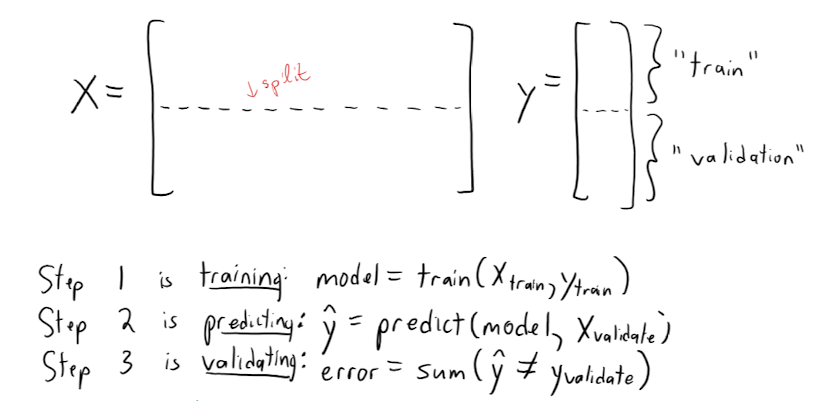 X = ↓ split y = "train"
"validation"
Step 1 is training: model = train(X_train, y_train)
Step 2 is predicting: ŷ = predict(model, X_validate)
Step 3 is validating: error = sum(ŷ ≠ y_validate)